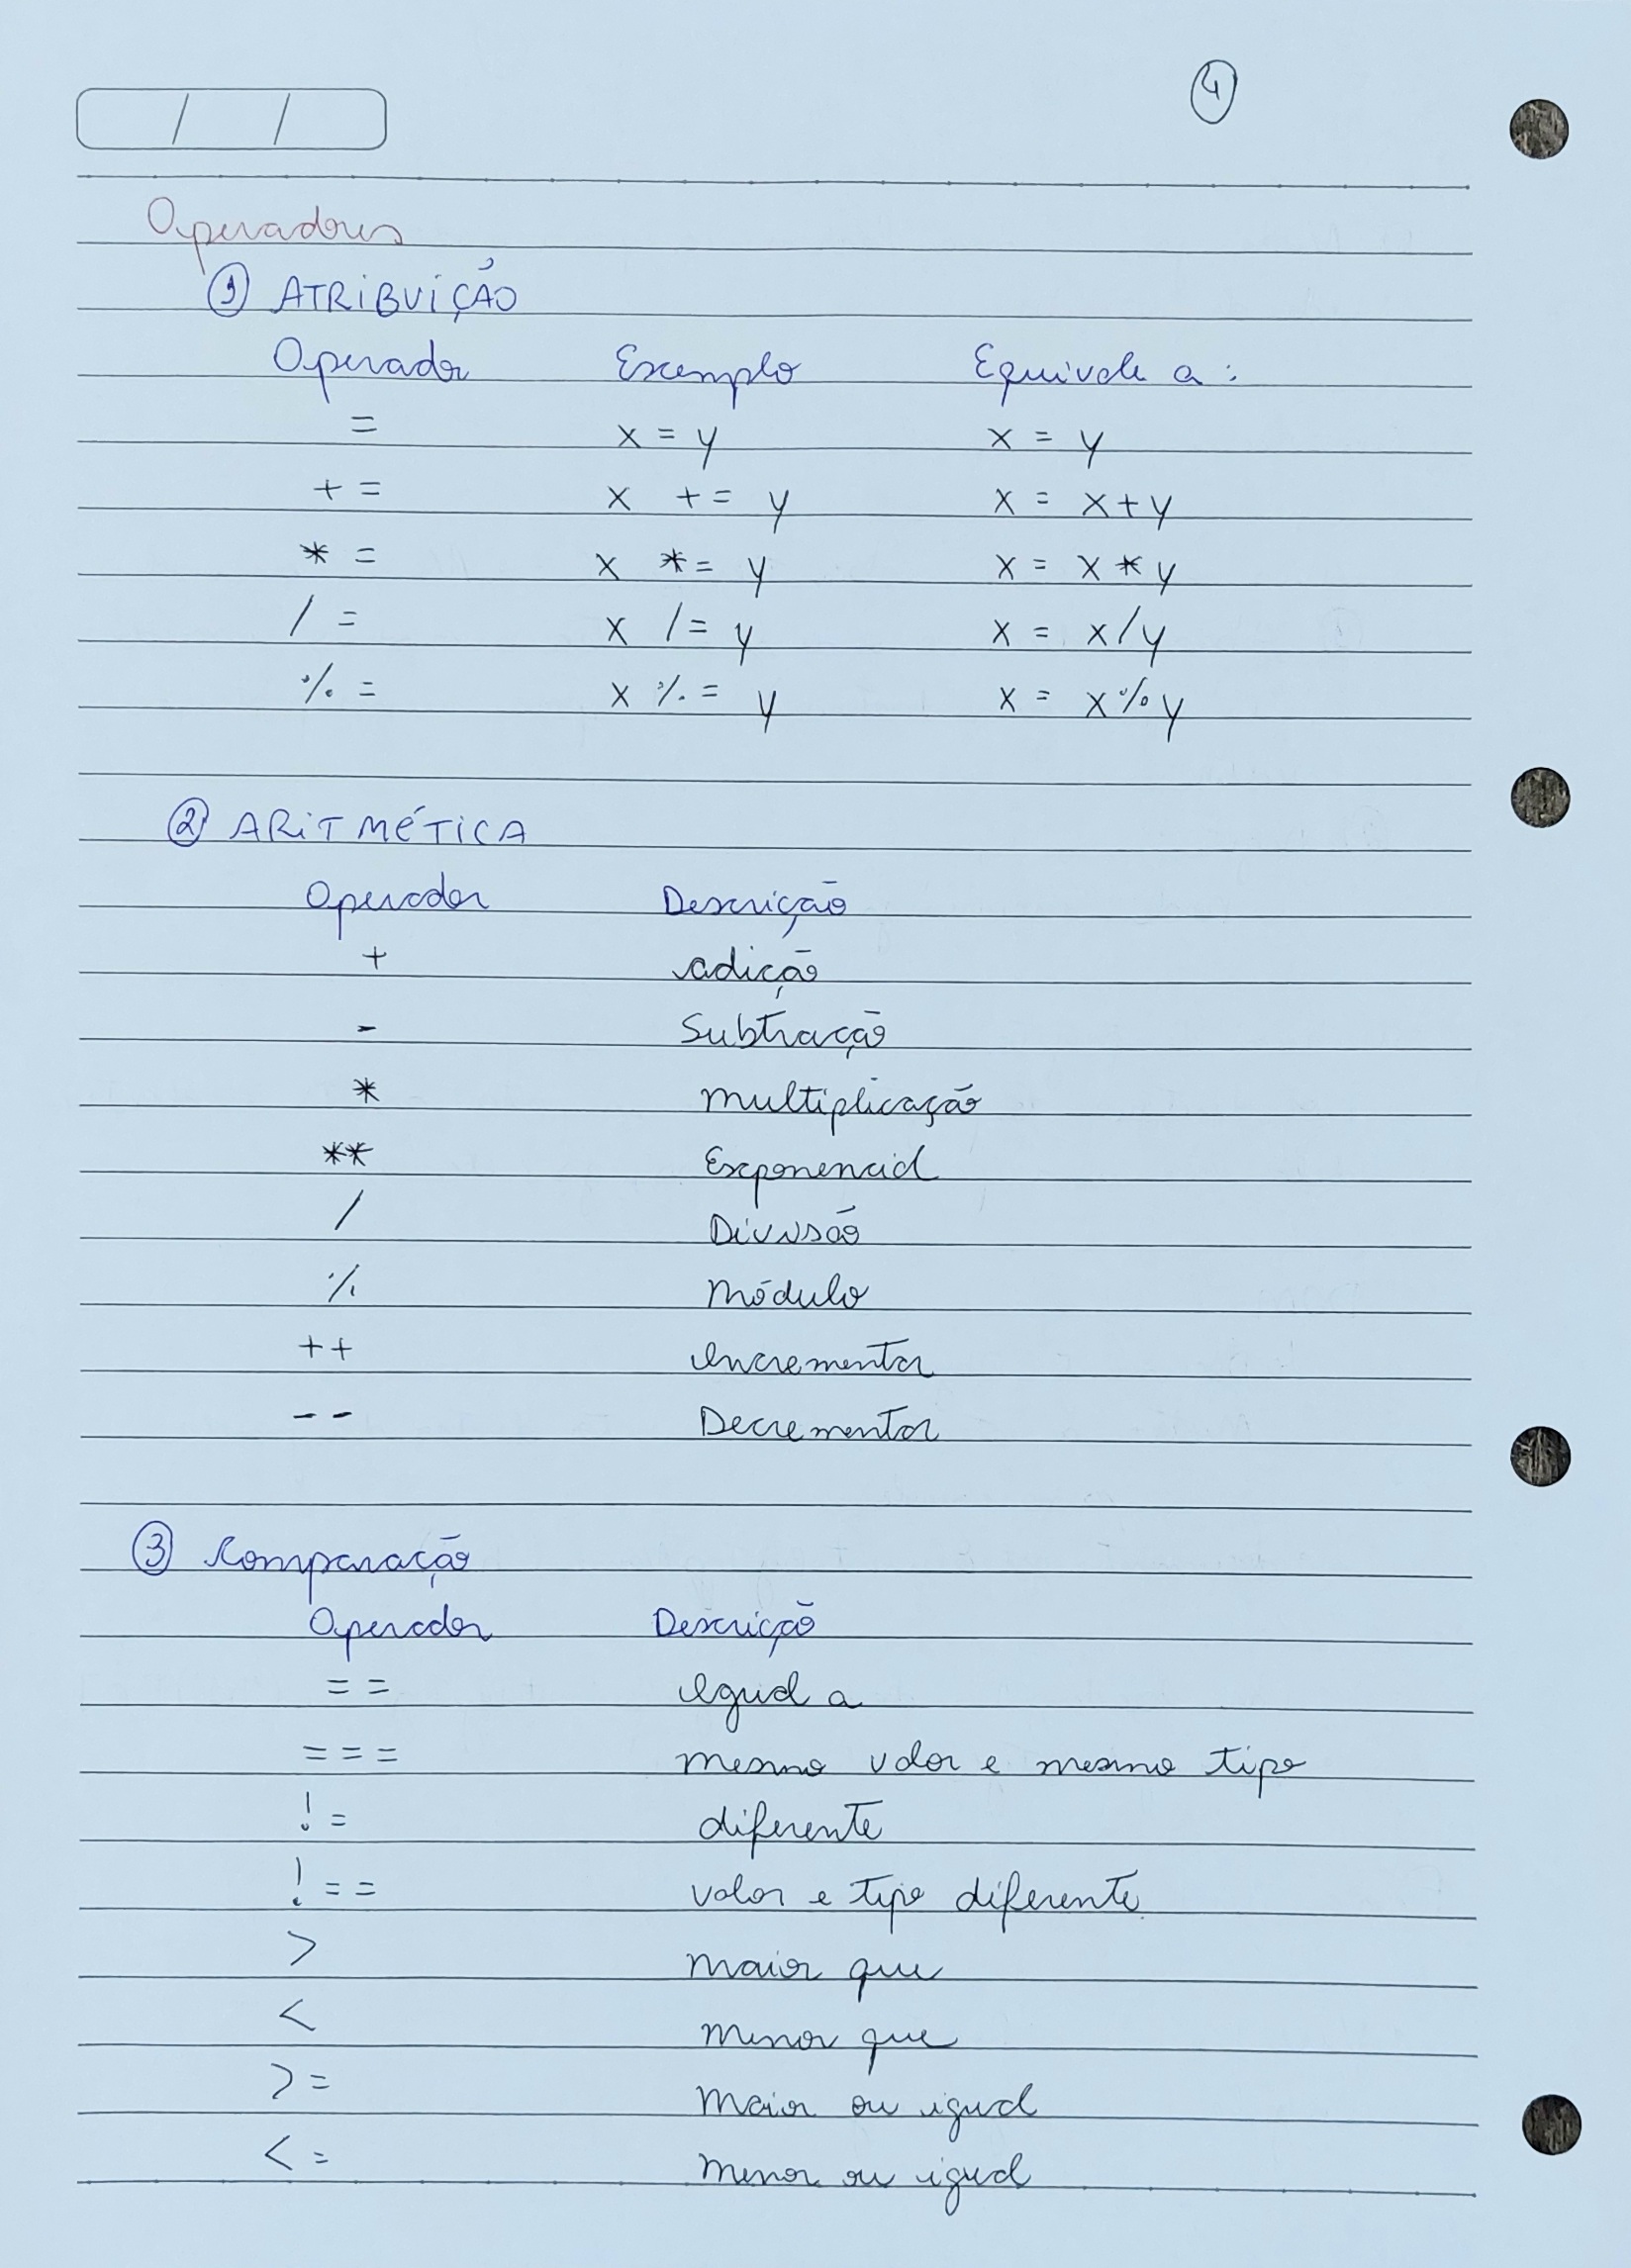 4
/ /
Operadores
1 ATRIBUIÇÃO
Operador Exemplo Equivale a :
= x = y x = y
+ = x + = y x = x + y
* = x * = y x = x * y
/ = x / = y x = x / y
% = x % = y x = x % y
2 ARITMÉTICA
Operador Descrição
+ adição
- Subtração
* multiplicação
** Exponencial
/ Divisão
% Módulo
++ Incrementar
-- Decrementar
3 Comparação
Operador Descrição
= = Igual a
= = = mesmo valor e mesmo tipo
! = diferente
! = = valor e tipo diferente
> maior que
< menor que
> = maior ou igual
< = menor ou igual